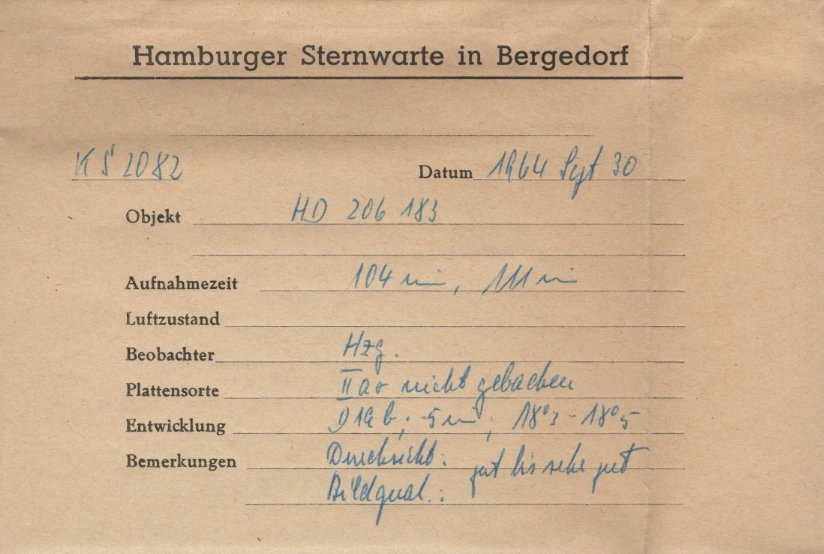 Hamburger Sternwarte in Bergedorf
KS 2082 Datum 1964 Sept 30
Objekt HD 206 183
Aufnahmezeit 104 min, 111 min
Luftzustand
Beobachter Hzg.
Plattensorte II a o nicht gebacken
Entwicklung D19b; 5 min; 18°3 - 18°5
Bemerkungen Durchsicht: gut bis sehr gut
Bildqual.: